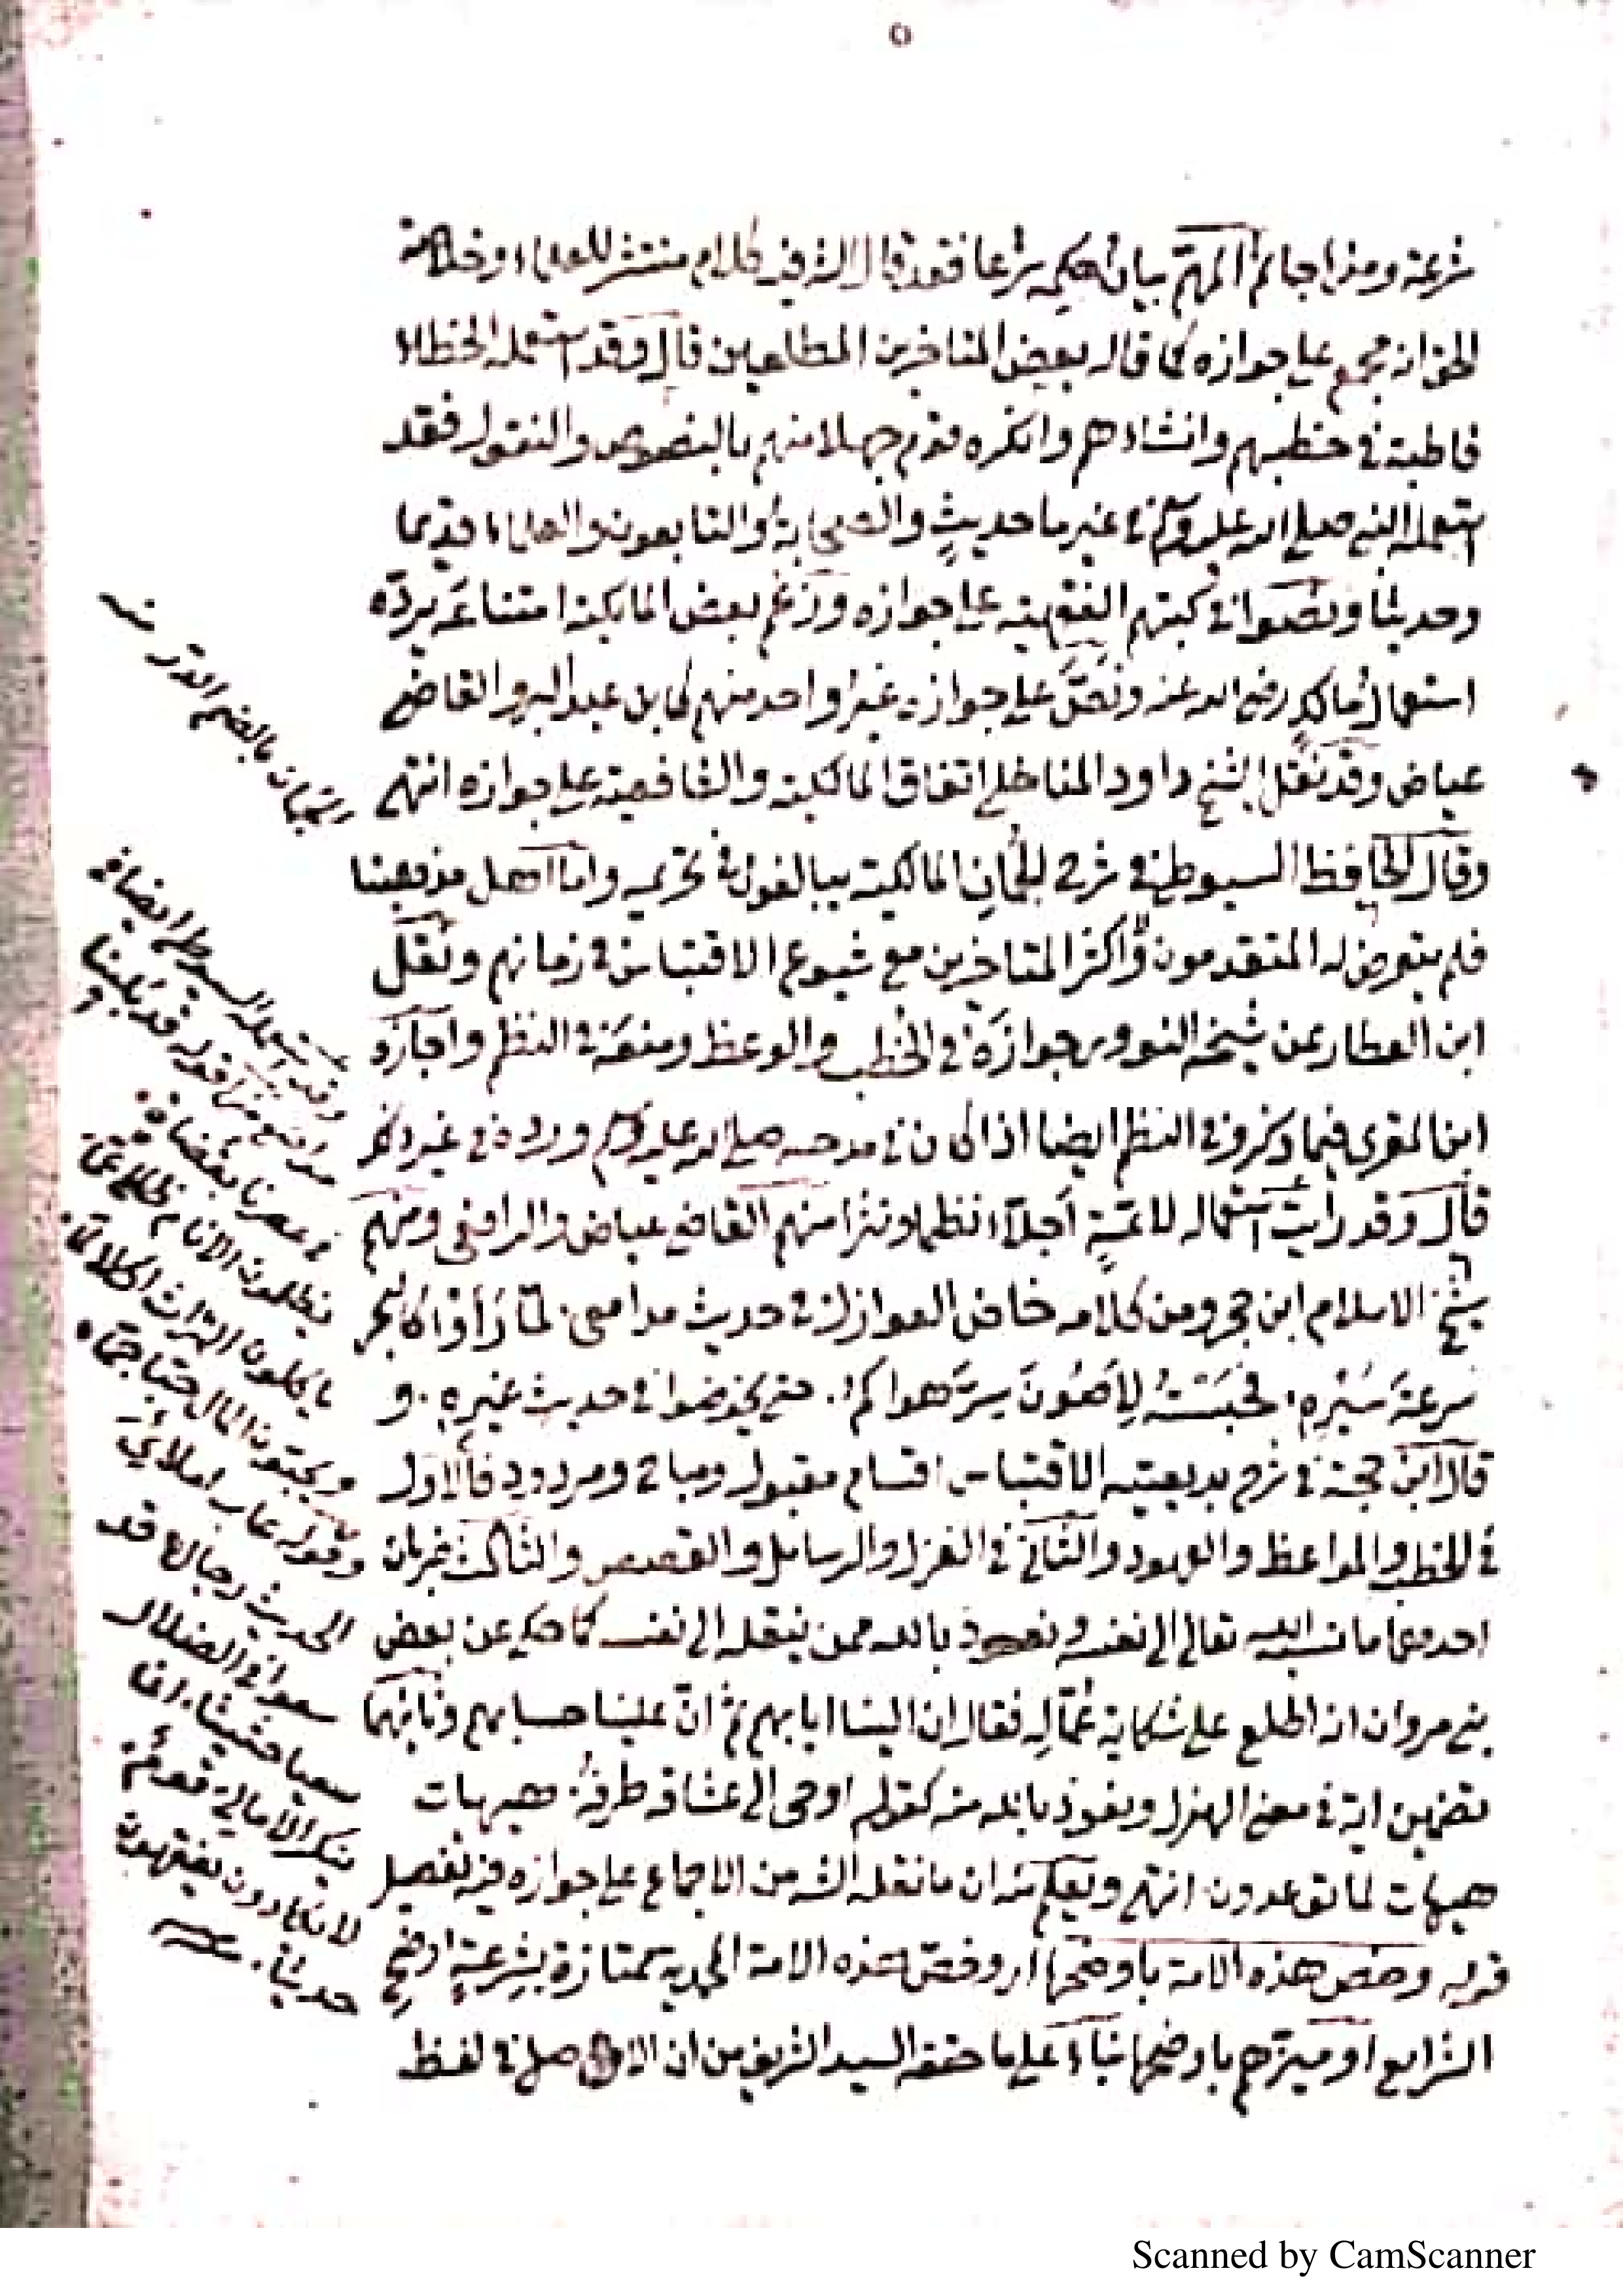 ٥
شرعة ومنهاجا ثم المهم بيان حكمه شرعا فقد قال الش فيه كلام منتشر للعلماء وخلاصة
الحق انه مجمع على جوازه كما قاله بعض المتاخرين المطلعين قال وقد استعمله الخطباء
قاطبة في خطبهم وانشاءهم وانكره قوم جهلا منهم بالنصوص والنقول فقد
استعمله النبي صلى الله عليه وسلم في غير ما حديث والصحابة والتابعون والعلماء قديما
وحديثا ونصوا في كتبهم الفقهية على جوازه وزعم بعض المالكية امتناعه يرده
استعمال مالك رضي الله عنه ونص على جوازه غير واحد منهم كابن عبد البر والقاضي
عياض وقد نقل الشيخ داود المناخلي اتفاق المالكية والشافعية على جوازه انتهى
وقال الحافظ السيوطي في شرح الجمان المالكية يبالغون في تحريمه واما اهل مذهبنا
فلم يتعرض له المتقدمون واكثر المتاخرين مع شيوع الاقتباس في زمانهم ونقل
ابن العطار عن شيخه النووي جوازه في الخطب والوعظ ومنعه في النظم واجازه
ابن المقري فيما ذكروه في النظم ايضا اذا كان في مدحه صلى الله عليه وسلم ورده في غير ذلك
قال وقد رايت استعماله لائمة أجلاء نظما ونثرا منهم القاضي عياض والرافعي ومنهم
شيخ الاسلام ابن حجر ومن كلامه خاض العواذل في حديث مدامعي. لما رأوا كالبحر
سرعة سيره. فحبسته لأصون سر هواكم. حتى يخوضوا في حديث غيره. و
قال ابن حجة في شرح بديعيته الاقتباس اقسام مقبول ومباح ومردود فالاول
في الخطب والمواعظ والعهود والثاني في الغزل والرسايل والقصص والثالث ضربان
احدهما ما نسبه الله تعالى الى نفسه ونعوذ بالله ممن ينقله الى نفسه كما حكي عن بعض
بني مروان انه اطلع على شكاية عماله فقال ان الينا ايابهم ثم ان علينا حسابهم وثانيهما
تضمين اية في معنى الهزل ونعوذ بالله منه كقولهم اوحى الى عشاقه طرفه. هيهات
هيهات لما توعدون. انتهى وبعلم منه ان ما نقله الش من الاجماع على جوازه فيه تفصيل
قوله وخص هذه الامة باوضحها اي وخص هذه الامة المحمدية ممتازة بشرعة اوضح
الشرايع او ميزهم باوضحها بناء على ما حققه السيد الشريف من ان الاصل في لفظ
الجمان بالضم الدر منه
وقد استعمله السيوطي ايضا
مواضع منها قوله قد بلينا و
عصرنا بقضاة.
يظلمون الانام ظلما عما
ياكلون التراث اكلا لما.
ويحبون المال حبا جما.
وقوله عاب املائي
الحديث رجال قد
سعوا في الضلال
سعيا حثيثا. انما
ينكر الامالي قوم
لا يكادون يفقهون
حديثا.
Scanned by CamScanner